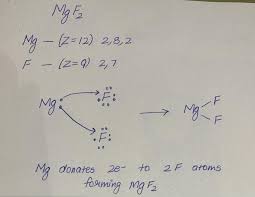 MgF₂
Mg — (Z=12) 2,8,2
F — (Z=9) 2,7
F
Mg → Mg F
F
F
Mg donates 2e- to 2 F atoms
forming MgF₂